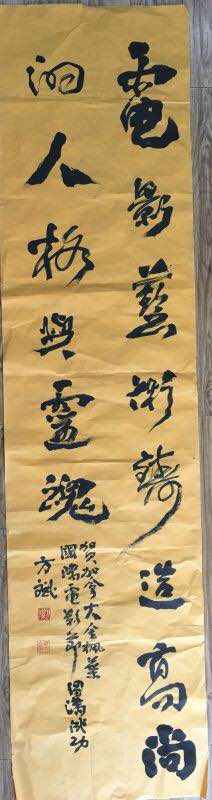 電影藝術鑄造高尚
的人格與靈魂
賀加拿大金楓葉
國際電影節圓滿成功
方斌